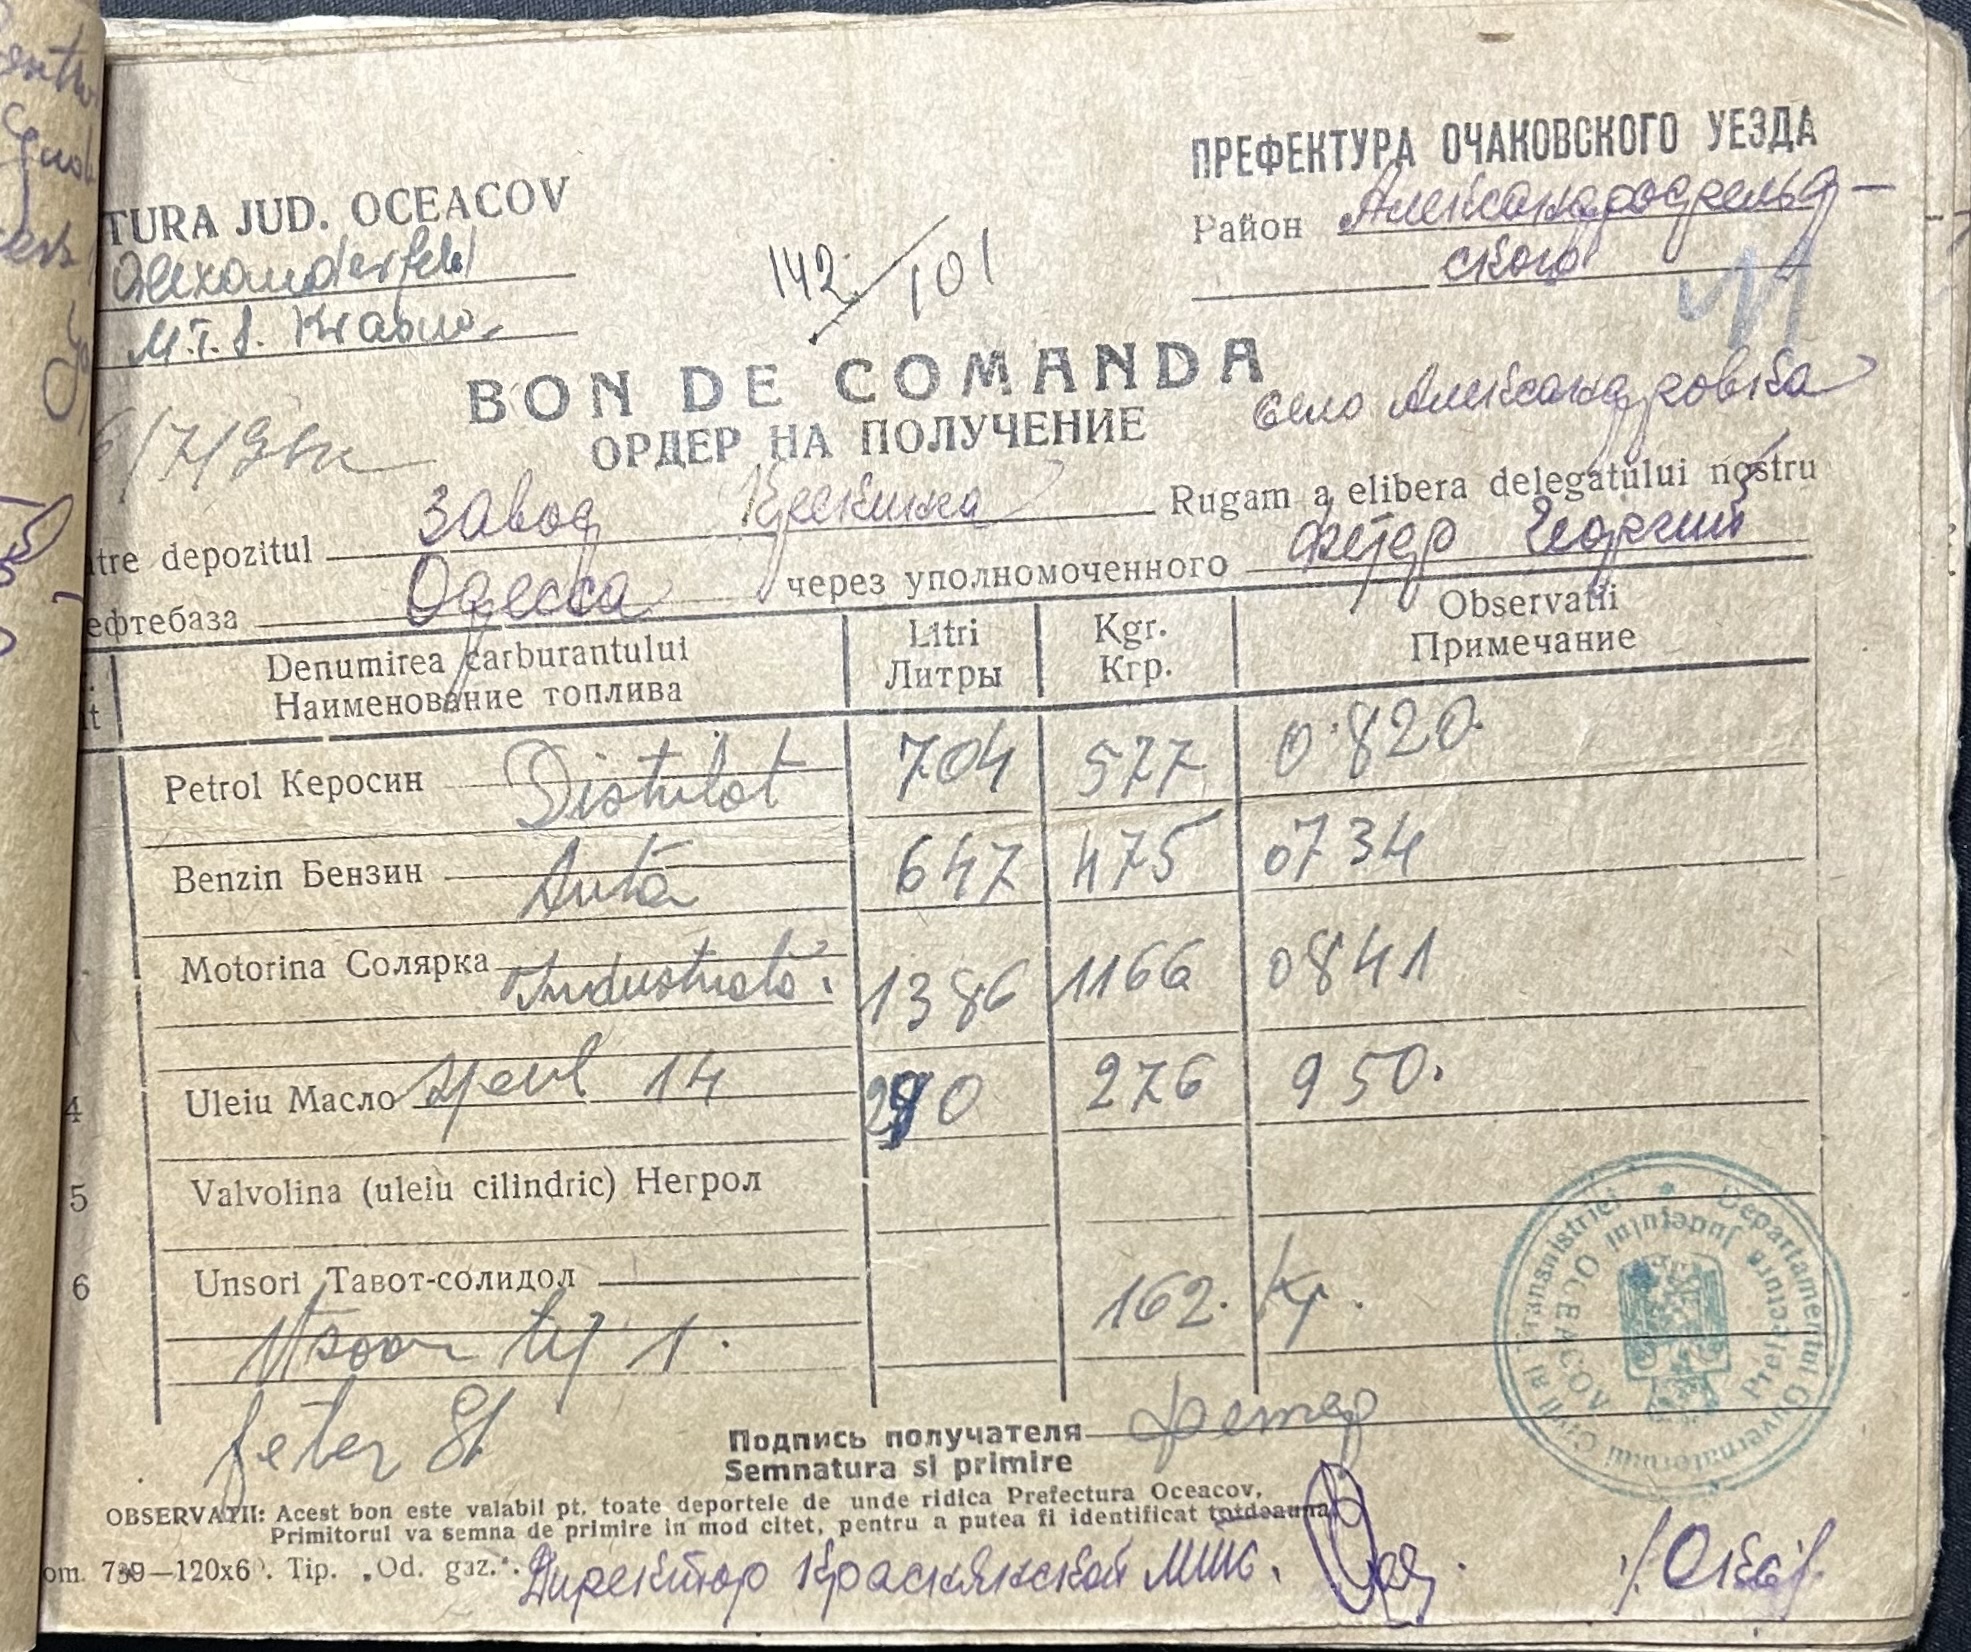 TURA JUD. OCEACOV
Alexanderfeld
M.T.S. Krasno-
142/101
ПРЕФЕКТУРА ОЧАКОВСКОГО УЕЗДА
Район Александродрельд-
ского
BON DE COMANDA
ОРДЕР НА ПОЛУЧЕНИЕ
село Александровка
tre depozitul завод Rugam a elibera delegatului nostru
ефтебаза Одесса через уполномоченного Фетер Георгий
Denumirea carburantului Litri Kgr. Observatii
Наименование топлива Литры Кгр. Примечание
Petrol Керосин Distilat 704 577 0.820.
Benzin Бензин Auto 647 475 0734
Motorina Солярка Industrială. 1386 1166 0841
4 Uleiu Масло 14 290 276 950.
5 Valvolina (uleiu cilindric) Негрол
6 Unsori Тавот-солидол 162. Kg.
1.
feter
Подпись получателя фетер
Semnatura si primire
OBSERVATII: Acest bon este valabil pt. toate deportele de unde ridica Prefectura Oceacov,
Primitorul va semna de primire in mod citet, pentru a putea fi identificat totdeauna
om. 739—120x6 . Tip. „Od. gaz.".
Директор Краснянской МТС.
Guvernatorul Civil al Transnistriei Departamentul
Prefectura Județului OCEACOV